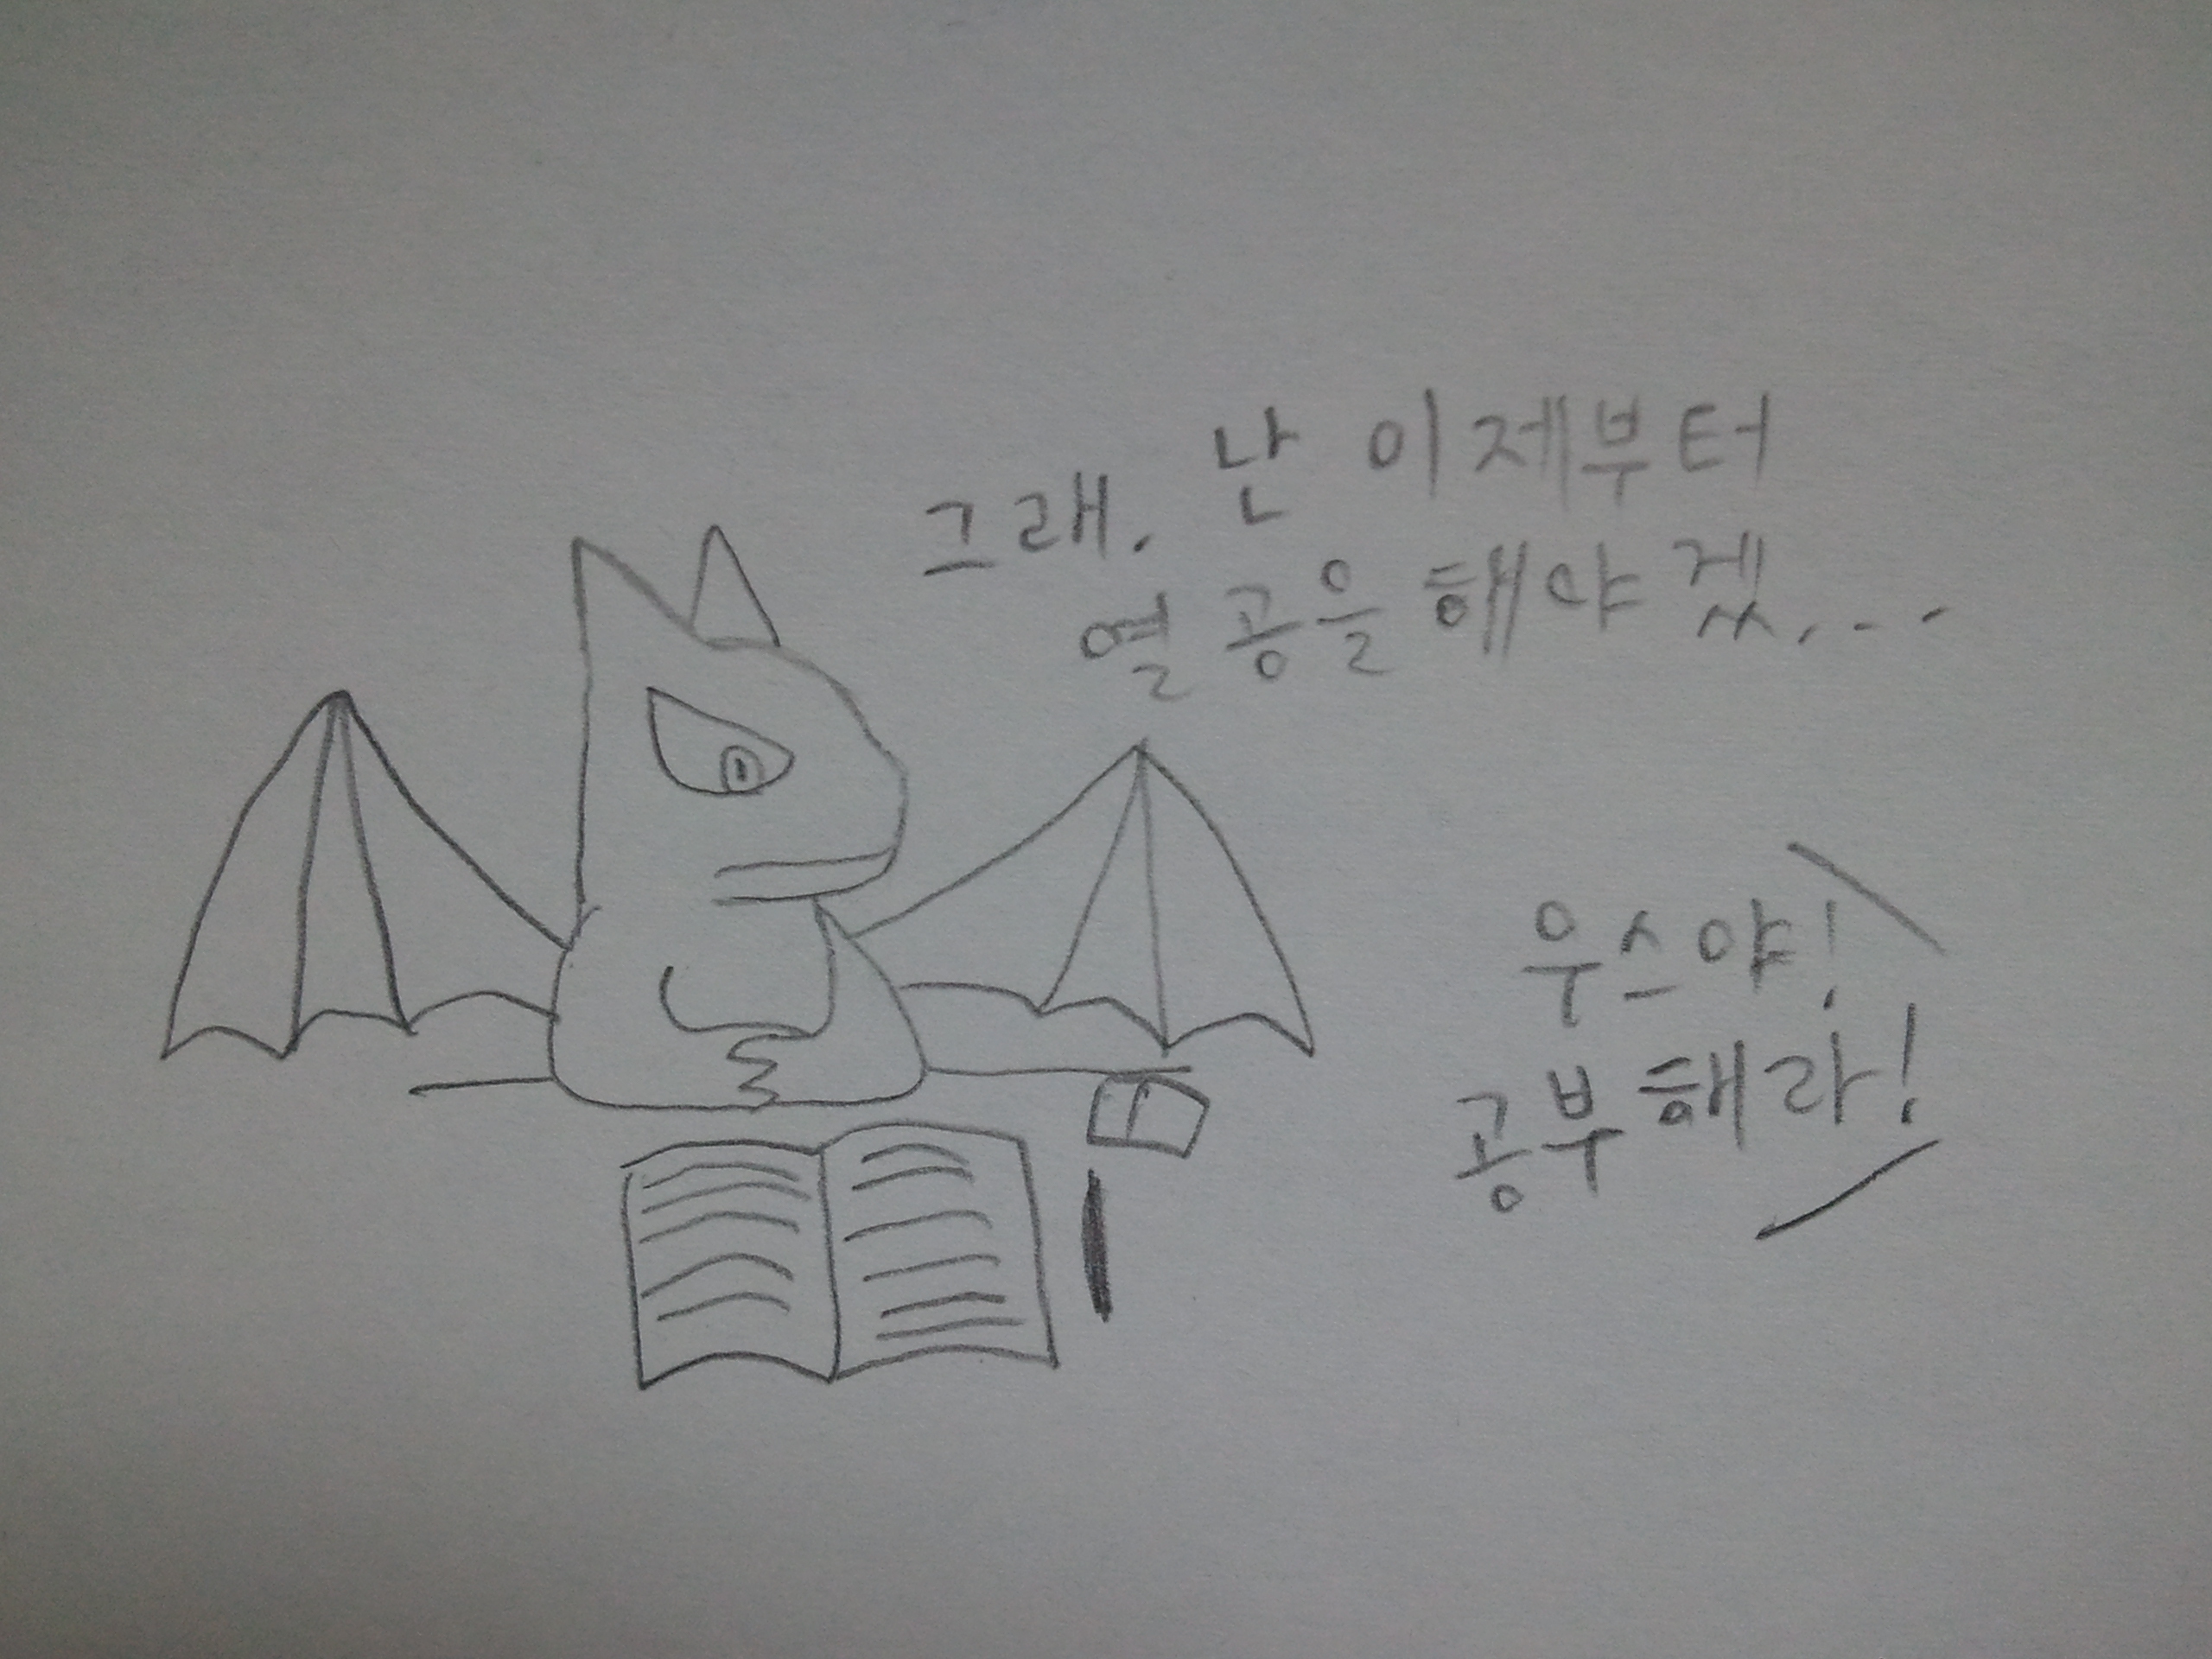 그래. 난 이제부터
열공을 해야겠...
우스야!
공부해라!